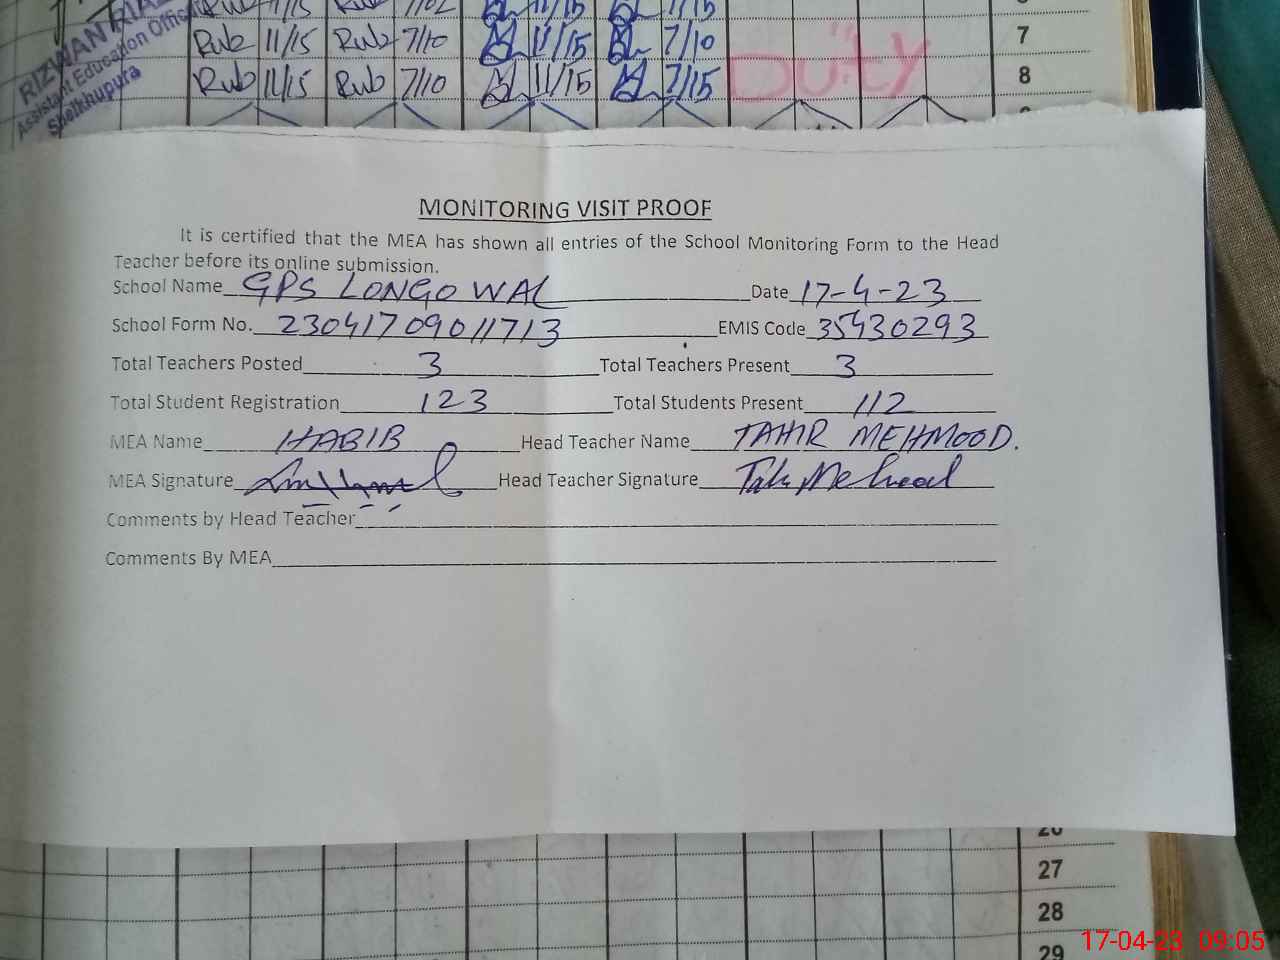 RIZWAN
Assistant Education Officer
Sheikhupura
11/15 11/15
Rub 11/15 Rub 7/10 11/15 7/10 7
Rub 11/15 Rub 7/10 11/15 7/15 Duty 8
MONITORING VISIT PROOF
It is certified that the MEA has shown all entries of the School Monitoring Form to the Head
Teacher before its online submission.
School Name GPS LONGOWAL Date 17-4-23
School Form No. 23041709011713 EMIS Code 35430293
Total Teachers Posted 3 Total Teachers Present 3
Total Student Registration 123 Total Students Present 112
MEA Name HABIB Head Teacher Name TAHIR MEHMOOD.
MEA Signature Head Teacher Signature Tahir Mehmood
Comments by Head Teacher
Comments By MEA
26
27
28
29
17-04-23 09:05